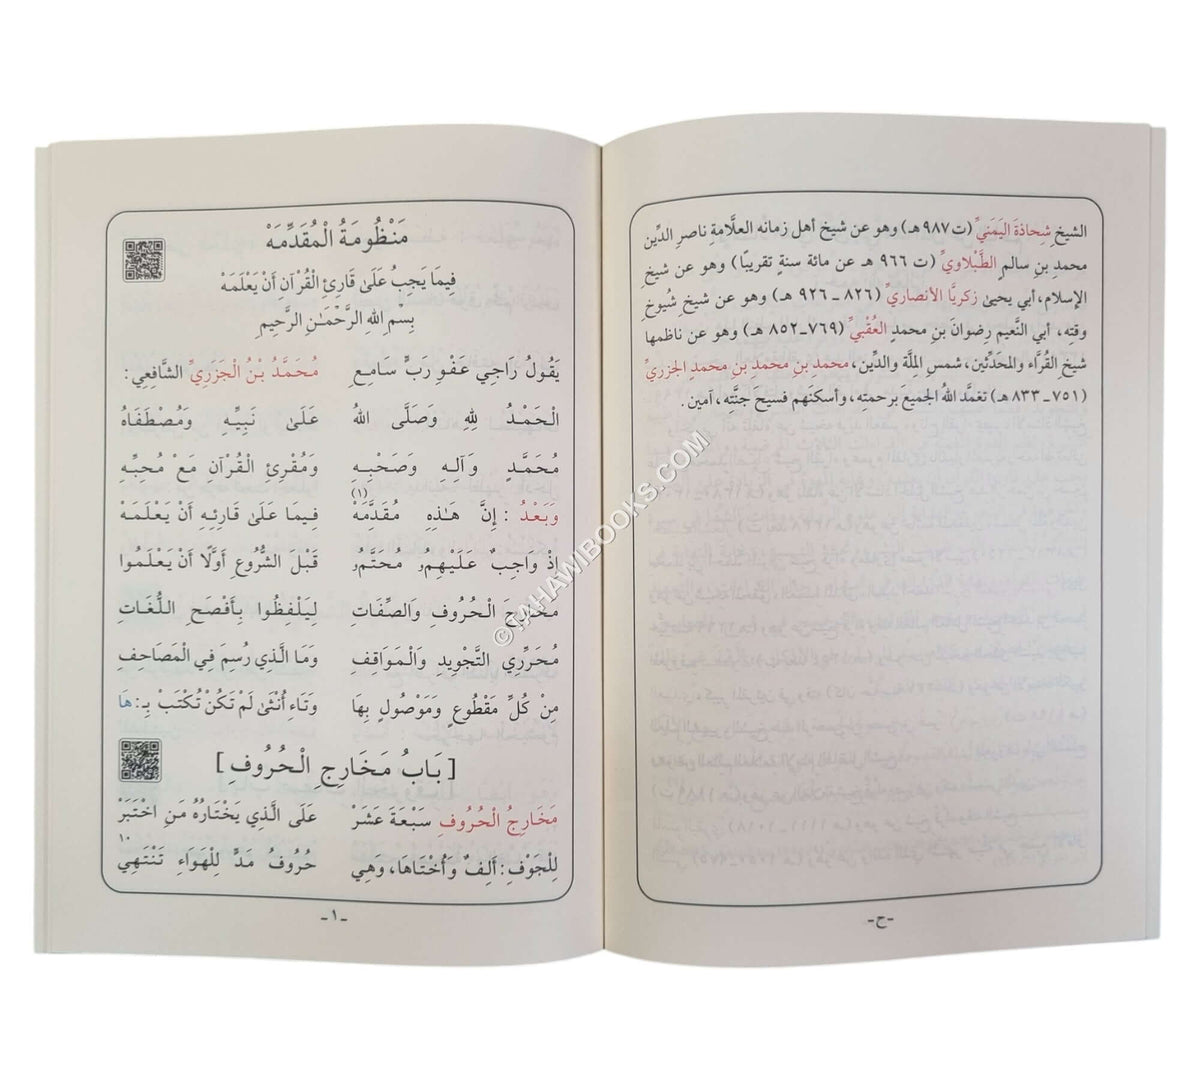 الشيخ شِحاذةَ اليَمَنيِّ (ت ٩٨٧هـ) وهو عن شيخ أهل زمانه العلَّامةِ ناصر الدِّين
محمدِ بنِ سالمٍ الطَّبْلاويِّ (ت ٩٦٦ هـ عن مائة سنةٍ تقريبًا) وهو عن شيخِ
الإسلام، أبي يحيىٰ زكريَّا الأنصاريِّ (٨٢٦ ـ ٩٢٦ هـ) وهو عن شيخِ شُيوخِ
وقتِه، أبي النَّعيم رِضوانَ بنِ محمدٍ العُقْبيِّ (٧٦٩ـ ٨٥٢ هـ) وهو عن ناظمها
شيخِ القُرَّاء والمحَدِّثين، شمسِ المِلَّة والدِّين، محمدِ بنِ محمدِ بنِ محمدٍ الجزريِّ
(٧٥١ـ ٨٣٣ هـ) تغمَّد اللهُ الجميعَ برحمتِه، وأسكنَهم فسيحَ جنَّتِه، آمين .
-ح-
مَنْظُومَةُ الْمُقَدِّمَهْ
فِيمَا يَجِبُ عَلَىٰ قَارِئِ الْقُرْآنِ أَنْ يَعْلَمَهْ
بِسْمِ اللهِ الرَّحْمَـٰنِ الرَّحِيمِ
يَقُولُ رَاجِي عَفْوِ رَبٍّ سَامِعِ مُحَمَّدُ بْنُ الْجَزَرِيِّ الشَّافِعِي :
الْحَمْدُ لِلهِ وَصَلَّى اللهُ عَلَىٰ نَبِيِّهِ وَمُصْطَفَاهُ
مُحَمَّدٍ وَآلِهِ وَصَحْبِهِ وَمُقْرِئِ الْقُرْآنِ مَعْ مُحِبِّهِ
وَبَعْدُ : إِنَّ هَـٰذِهِ مُقَدِّمَهْ (١) فِيمَا عَلَىٰ قَارِئِهِ أَنْ يَعْلَمَهْ
إِذْ وَاجِبٌ عَلَيْهِمُ مُحَتَّمُ قَبْلَ الشُّرُوعِ أَوَّلًا أَنْ يَعْلَمُوا
مَخَارِجَ الْحُرُوفِ وَالصِّفَاتِ لِيَلْفِظُوا بِأَفْصَحِ اللُّغَاتِ
مُحَرِّرِي التَّجْوِيدِ وَالْمَوَاقِفِ وَمَا الَّذِي رُسِمَ فِي الْمَصَاحِفِ
مِنْ كُلِّ مَقْطُوعٍ وَمَوْصُولٍ بِهَا وَتَاءِ أُنْثَىٰ لَمْ تَكُنْ تُكْتَبْ بِـ: هَا
[ بَابُ مَخَارِجِ الْحُرُوفِ ]
مَخَارِجُ الْحُرُوفِ سَبْعَةَ عَشَرْ عَلَى الَّذِي يَخْتَارُهُ مَنِ اخْتَبَرْ
لِلْجَوْفِ : أَلِفٌ وَأُخْتَاهَا، وَهِي حُرُوفُ مَدٍّ لِلْهَوَاءِ تَنْتَهِي ١٠
-١-
©TAHAWIBOOKS.COM